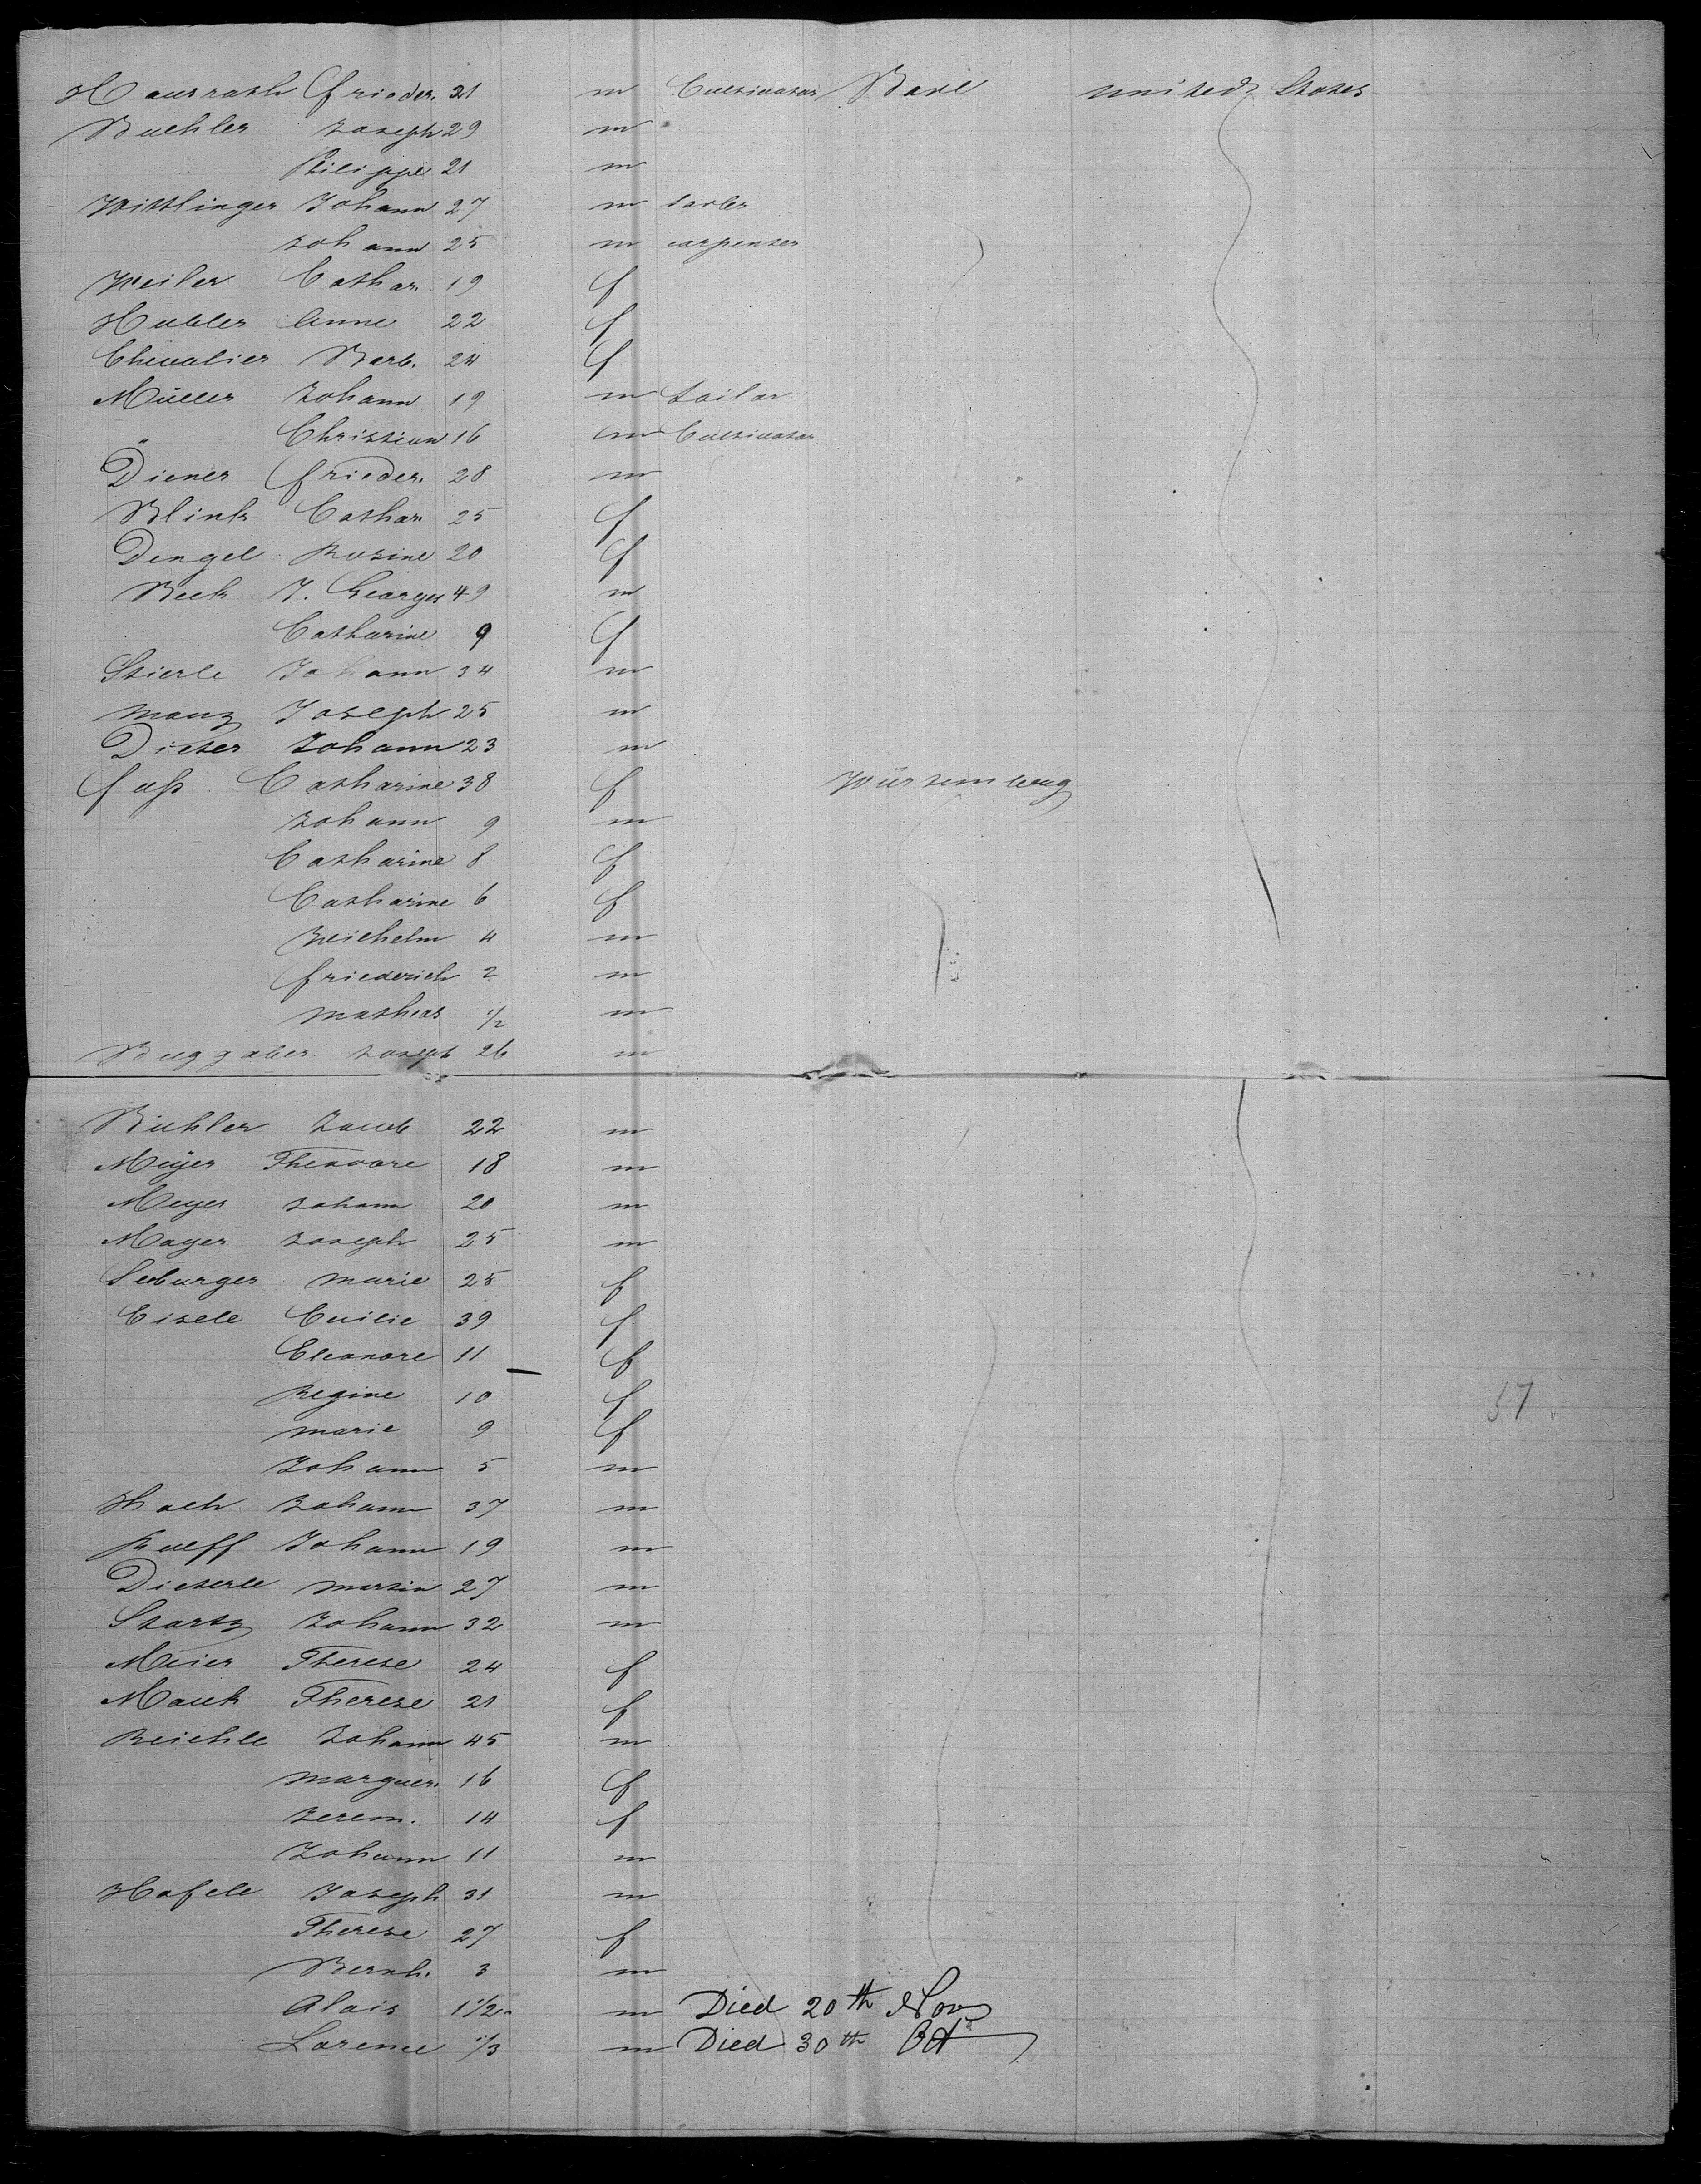 Hausrath Frieder. 21 m Cultivator Bavl united States
Buehler Joseph 29 m
Philippe 21 m
Wittlinger Johann 27 m
Johann 25 m carpenter
Weiler Cathar. 19 f
Hubler Anne 22 f
Chevalier Barb. 24 f
Müller Johann 19 m tailor
" Christian 16 m Cultivator
Diener Frieder. 28 m
Blink Cathar. 25 f
Dengel Rosine 20 f
Beck J. Georges 49 m
Catharine 9 f
Stierle Johann 34 m
Manz Joseph 25 m
Dieter Johann 23 m
Fuſs Catharine 38 f Würtemberg
Johann 9 m
Catharine 8 f
Catharine 6 f
Wilhelm 4 m
Friederich 2 m
Mathias 1/2 m
Joseph 26 m
Buhler Jacob 22 m
Meyer Theodore 18 m
Meyer Johann 20 m
Mayer Joseph 25 m
Seeburger Marie 25 f
Eisele Cecilie 39 f
Eleonore 11 f
Regine 10 f
Marie 9 f
Johann 5 m
37
Hoch Johann 37 m
Rueff Johann 19 m
Dieterle Martin 27 m
Startz Johann 32 m
Meier Therese 24 f
Mauk Therese 21 f
Reichle Johann 45 m
Marguer. 16 f
Jerem. 14 f
Johann 11 m
Hafele Joseph 31 m
Therese 27 f
Bernh. 3 m
Alois 1 1/2 m Died 20th Nov
Lorence 1/3 m Died 30th Oct